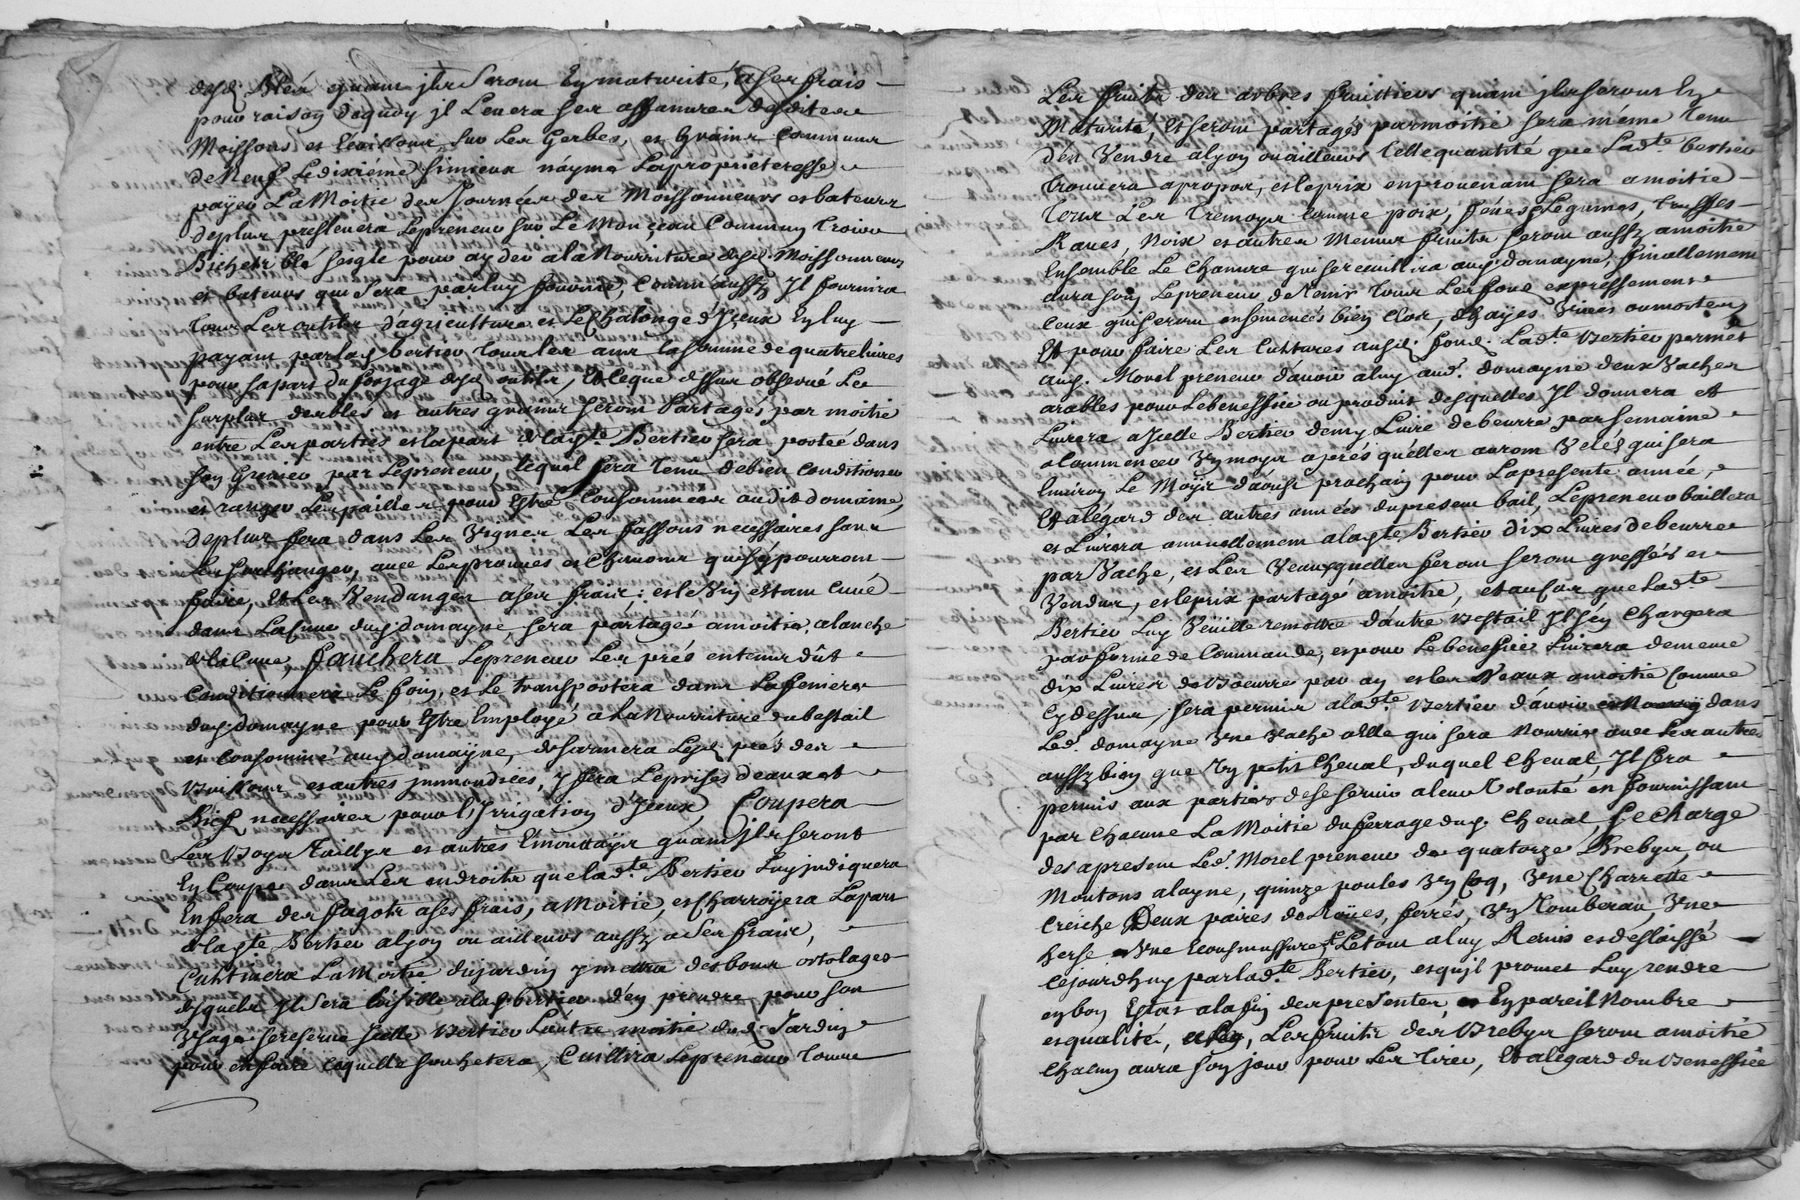 desd. bleds quant ils seront en maturité, a ses frais
pour raison dequoy jl Levera ses affanures desdites
Moissons et Levissons sur Les Gerbes, et Grains communs
de Neuf Le dixiéme si mieux n'áyme La propriéteresse
payer La Moitie des Journées des Moissonneurs et bateurs
de plus preslevera Lepreneur sur Le Monceau Commun Trois
Bichets blé seigle pour ayder a la Nourriture desd. Moissonneurs
et bateurs qui sera par luy fournie, comm'aussy Il fournira
tous Les outils d'agriculture et Le chalonge d'Iceux En luy
payant par lad. Bertier tous les ans la somme de quatre livres
pour sa part du forjage desd. outils, Et ce que dessus observé Le
surplus des bles et autres grains seront Partagés par moitié
entre Les parties et la part de lad.te Bertier sera portée dans
son Grenier par Lepreneur, Lequel sera tenu de bien conditionner
et ranger Les pailles pour Estre Consommées audit domaine,
de plus fera dans Les Vignes Les fassons necessaires sans
Les surchanger, avec Les provues et Chavons qui s'y pourront
faire, Et Les Vendanges a ses frais; et le Vin estant cuvé
dans La cuve dud. domayne sera partagé a moitié, a l'anche
de la Cuve, fauchera Lepreneur Les prés en tems dût
Conditionnera Le foin, et Le transportera dans La feniere
dud. domayne pour Estre Employé a la Nourriture du bestail
et Consommé aud. domayne, desarmera Lesd. prés des
Buissons et autres jmmondices, y fera Les prises d'eaux et
Bief necessaires pour L'Irrigation d'Iceux, Coupera
Les Boys Taillys et autres Emouttays quant jls seront
En Coupe dans Les endroits que lad.te Bertier Luy jndiquera
En fera des fagots a ses frais, a Moitié, et Charroÿera La part
de lad.te Bertier a Lyon ou ailleurs aussy a ses frais,
Cultivera La Moitie du jardin y mettra des bons ortolages
desquels Il sera loisible a lad. bertier d'en prendre pour son
Usage se reserve Icelle Bertier L'autre moitié dud. Jardin
pour en faire ce quelle souhetera, Cuillira Lepreneur Tous
Les fruits des arbres fruittiers quant jls seront En
Maturité, Et seront partagés par moitié sera méme Tenu
d'en Vendre a Lyon ou ailleurs Telle quantité que Lad.te bertier
trouvera a propos, et le prix en provenant sera a moitié
Tous Les Trémoys comme poix, féves, Legumes, Truffes
Raves, Noix et autres Menus fruits seront aussy a moitié
Ensemble Le Chanvre qui se cuillira aud. domayne, finallement
aura soin Lepreneur de Tenir Tous Les fonds expressement
Ceux qui seront ensemencés bien Clos, d'hayes Vives ou mortes
Et pour faire Les Cultures ausd. fonds. Lad.te Bertier permet
aud. Morel preneur d'avoir a luy aud. domayne deux Vaches
arables pour Le benessice ou produit desquelles Il donnera et
Livrera a Icelle Bertier demy Livre de beurre par semaine
a Commencer Un moys aprés quélles auront Velés qui sera
Environ Le Moÿs d'aoust prochain pour La presente année,
Et a l'egard des autres années du present bail, Lepreneur baillera
et Livrera annuellement a lad.te Bertier dix Livres de beurre
par Vache, et Les Veaux quelles feront seront gressés et
Vendus, et le prix partagé a moitié, et au cas que Lad.te
Bertier Luy Veüille remettre d'autre Bestail Il s'en Chargera
par forme de Commande, et pour Le benessice Livrera de meme
dix Livres de Beurre par an et les Veaux a moitié Comme
Cy dessus, sera permis a lad.te Bertier d'avoir dans
Led. domayne Une Vache a Elle qui sera Nourrie avec Les autres
aussy bien que Un petit Cheval, duquel Cheval, Il sera
permis aux parties de se servir a leur Volonté en fournissant
par Chacune La Moitié du ferrage dud. Cheval, Se Charge
des a present Led. Morel preneur de quatorze Brebys, ou
Moutons a layne, quinze poules Un Coq, Une Charrette
Creiche Deux paires de Roües, ferrés, Un Tombereau, Une
herse Une Le tout a luy Remis et deslaissé
Cejourdhuy par lad.te Bertier, et qu'jl promet Luy rendre
en bon Estat a la fin des presentes, En pareil Nombre
et qualité, Les fruits des Brebys seront a moitié
Chacun aura son jour pour Les Tirer, Et a legard du Benessice